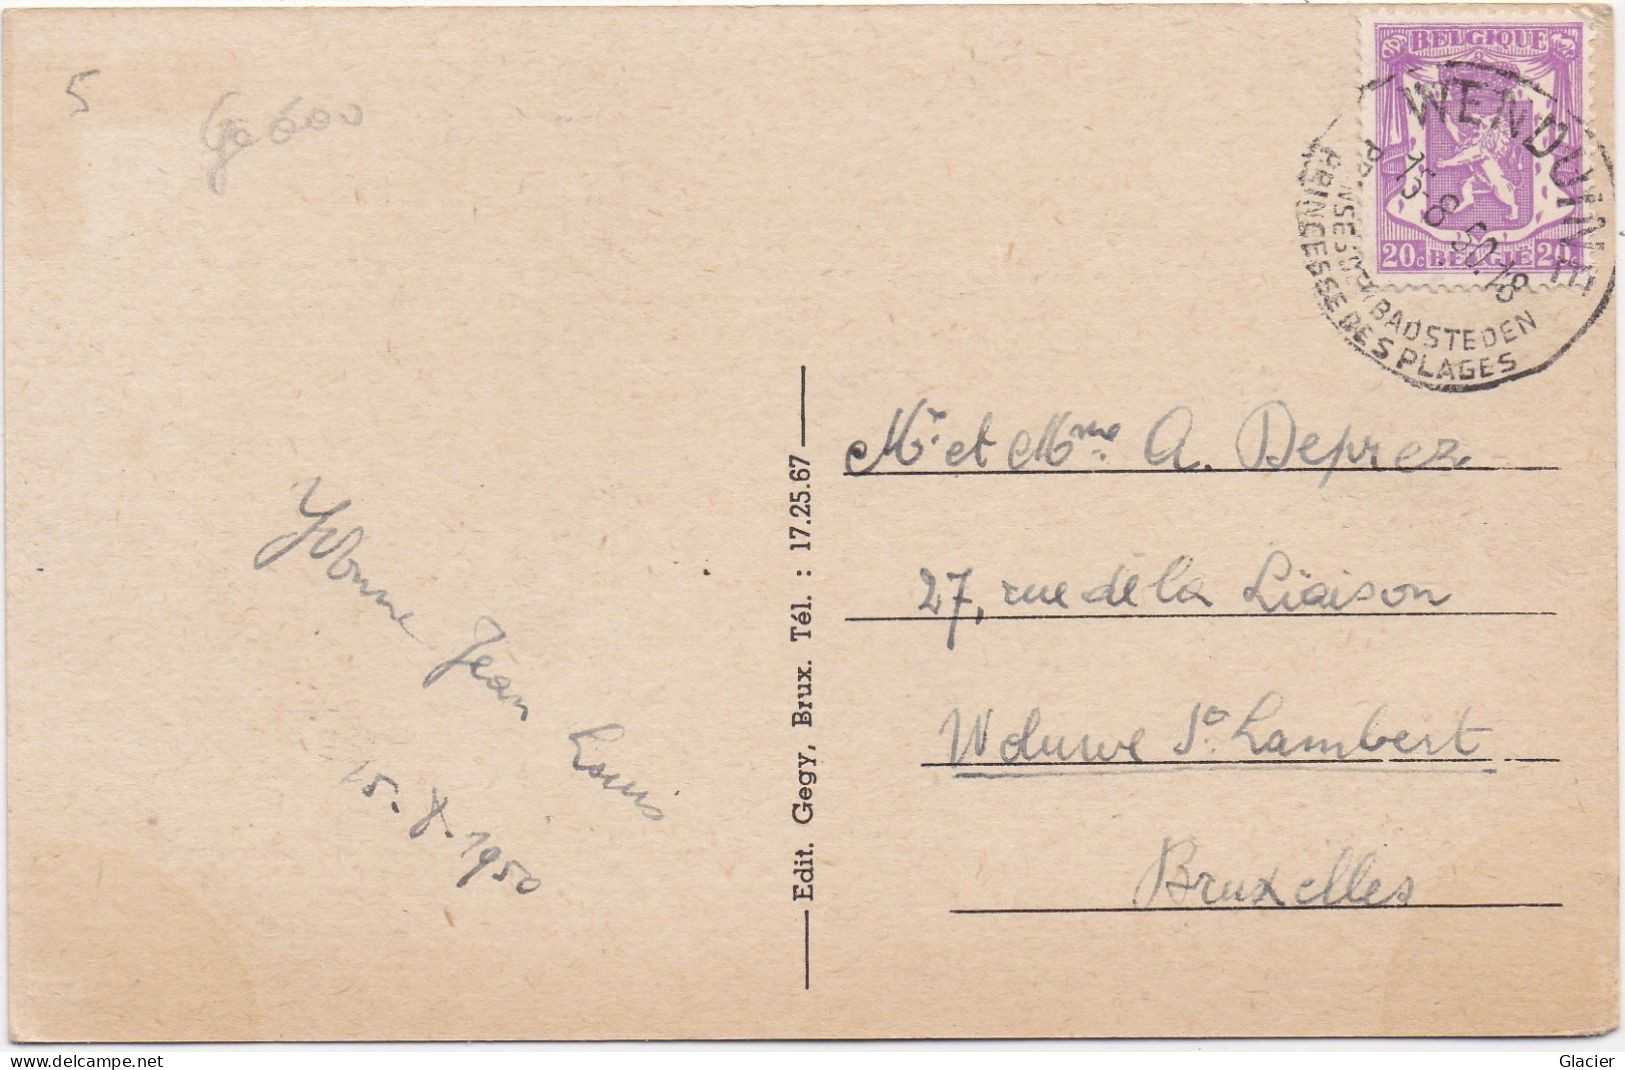 5
BELGIQUE
20c BELGIË 20c
WENDUINE
15-8 50.18
PRINSES DER BADSTEDEN
PRINCESSE DES PLAGES
Mr. et Mme. A. Deprez
27, rue de la Liaison
Woluwe St. Lambert
Bruxelles
Yvonne Jean Louis
15.8.1950
Edit. Gegy, Brux. Tél. : 17.25.67
delcampe.net
Glacier